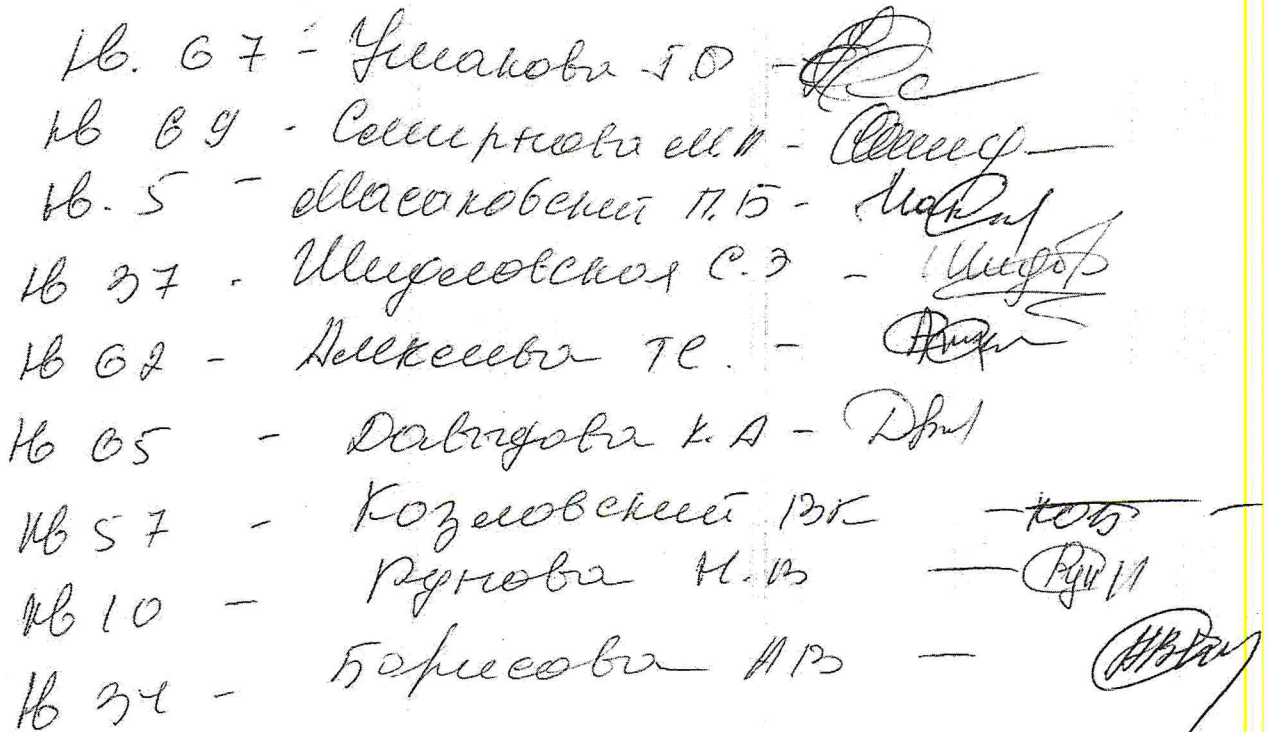 кв. 67 - Ушакова Т.О -
кв 69 - Смирнова М.П -
кв. 5 - Масаковский П.Б -
кв 37 - Шидловская С.Э -
кв 62 - Алексеева Т С. -
кв 65 - Давыдова К.А -
кв 57 - Козловский В К -
кв 10 - Рунова Н.В -
кв 34 - Борисова А В -